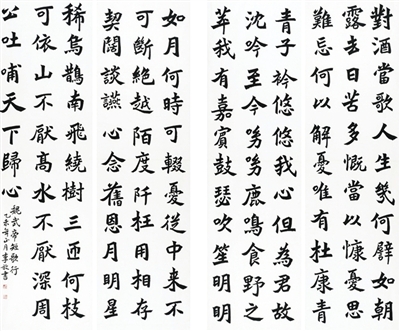 對酒當歌人生幾何譬如朝
露去日苦多慨當以慷憂思
難忘何以解憂唯有杜康青
青子衿悠悠我心但為君故
沈吟至今呦呦鹿鳴食野之
苹我有嘉賓鼓瑟吹笙明明
如月何時可輟憂從中来不
可斷絕越陌度阡枉用相存
契闊談讌心念舊恩月明星
稀烏鵲南飛繞樹三匝何枝
可依山不厭高水不厭深周
公吐哺天下歸心
魏武帝短歌行
乙未年正月李書